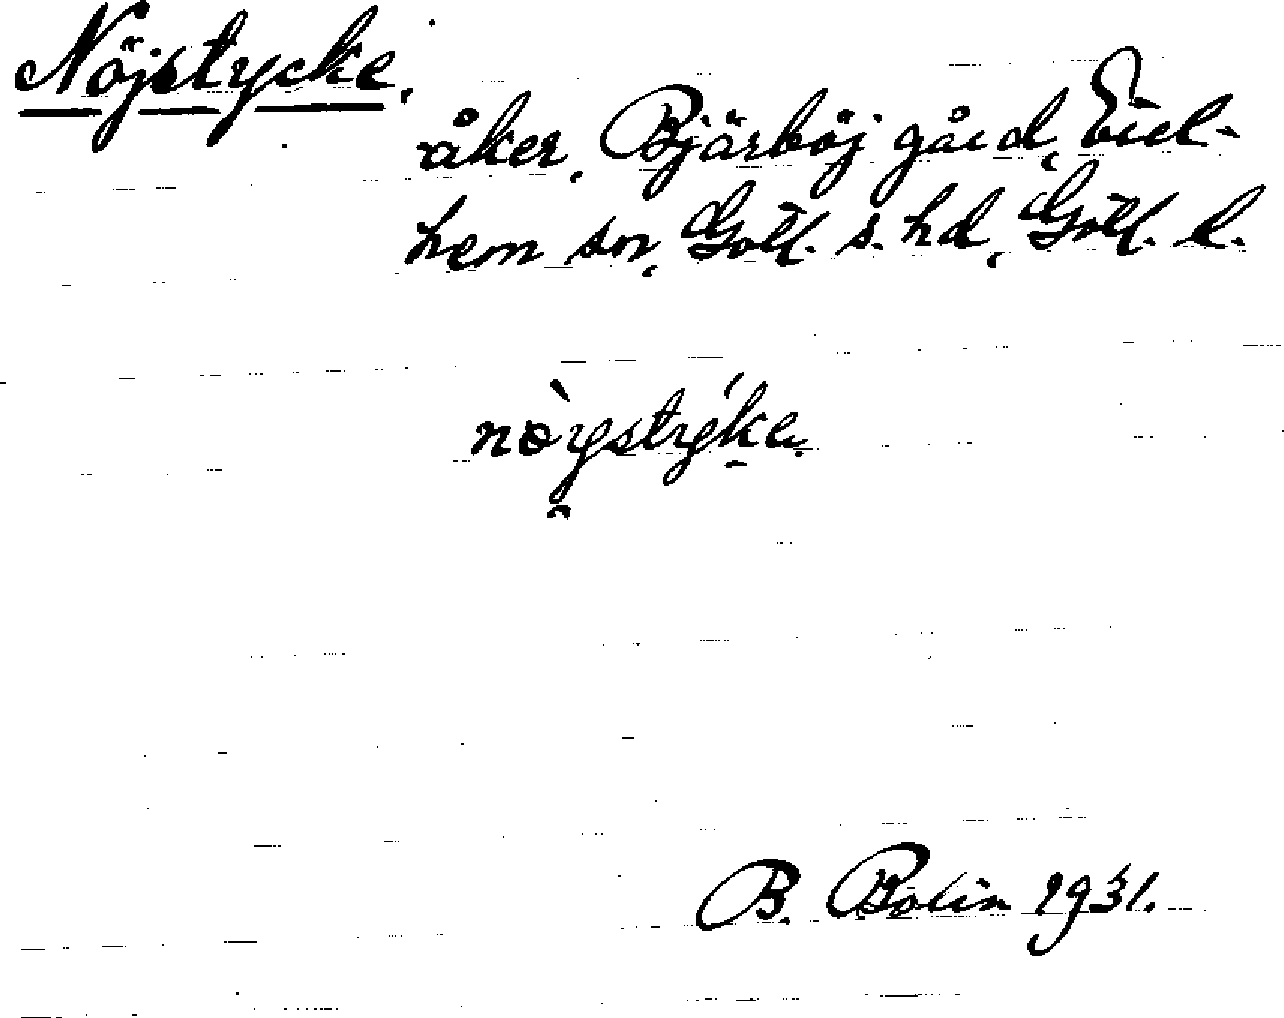 Nöjstycke.
åker, Bjärböj gård, Eiel-
hem sn, Gotl. s. hd, Gotl. l.
nòystýke
B. Bolin 1931.